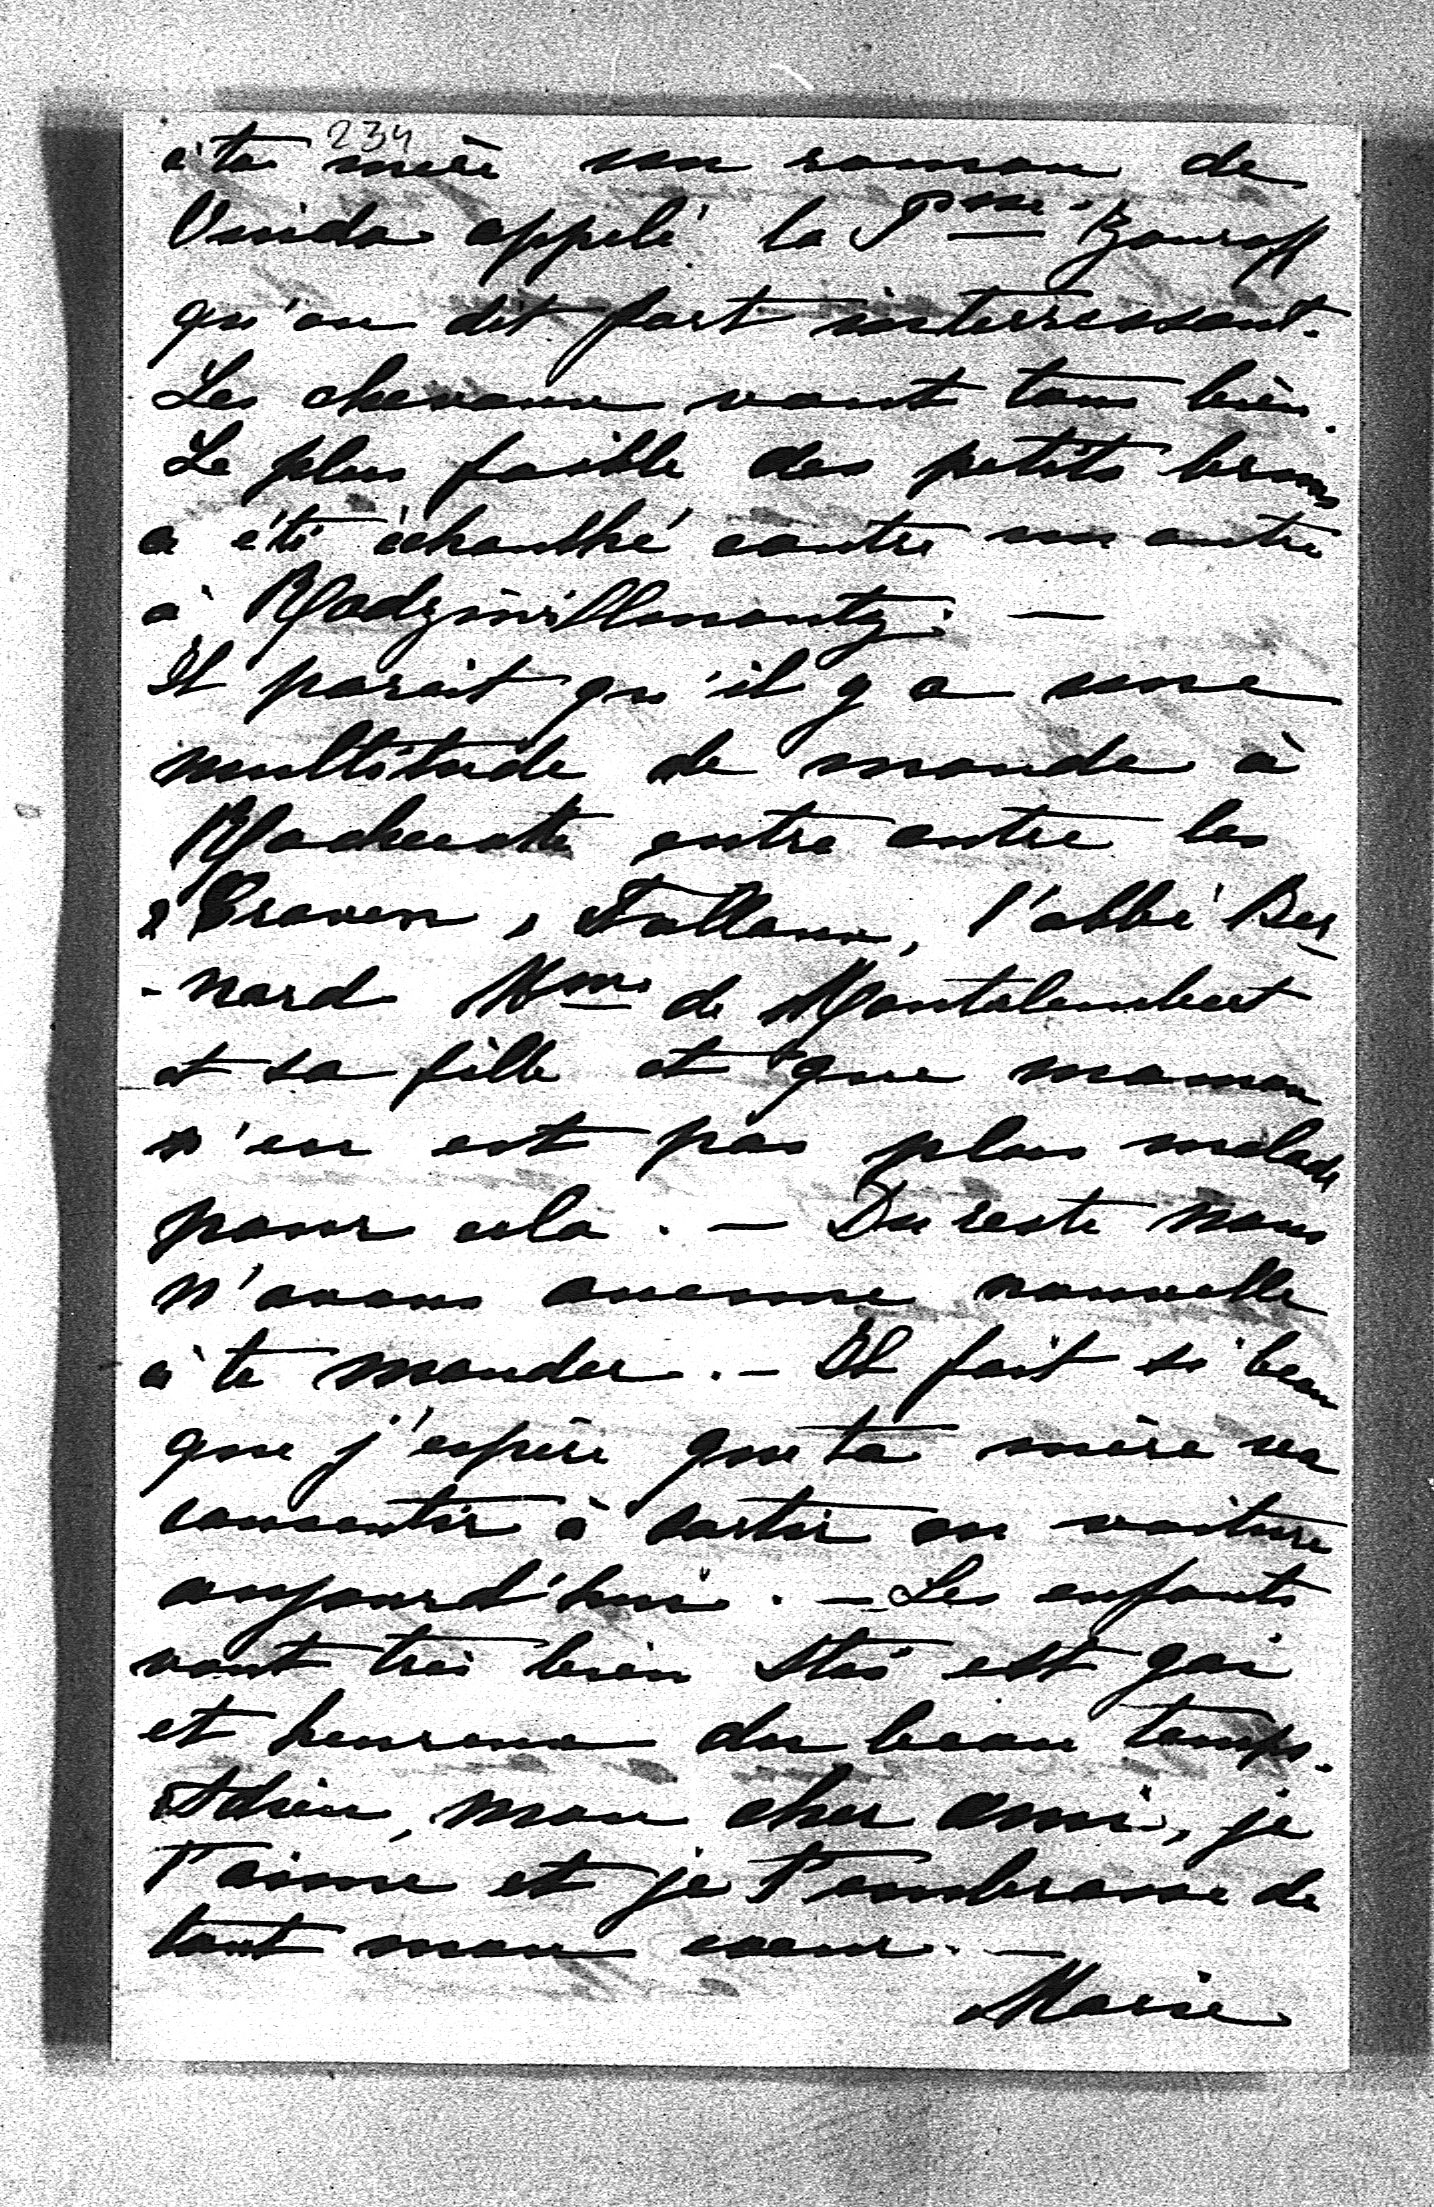 234
à ta mère un roman de
Ouida appelé la Psse Zouroff
qu'on dit fort interressant.
Les chevaux vont tous bien.
Le plus faible des petits bruns
a été échanthé contre un autre
à Radziwillmonty. —
Il parait qu'il y a une
multitude de monde à
entre autre les
Craven, Falloux, l'abbé Ber
-nard Mme de Montalembert
et sa fille et que maman
n'en est pas plus malade
pour cela. — Du reste nous
n'avons aucune nouvelle
à te mander. — Il fait si beau
que j'espère que ta mère va
consentir à sortir en voiture
aujourd'hui. — Les enfants
vont très bien Stas est gai
et heureux du beau temps.
Adieu, mon cher ami, je
t'aime et je t'embrasse de
tout mon coeur. —
Marie